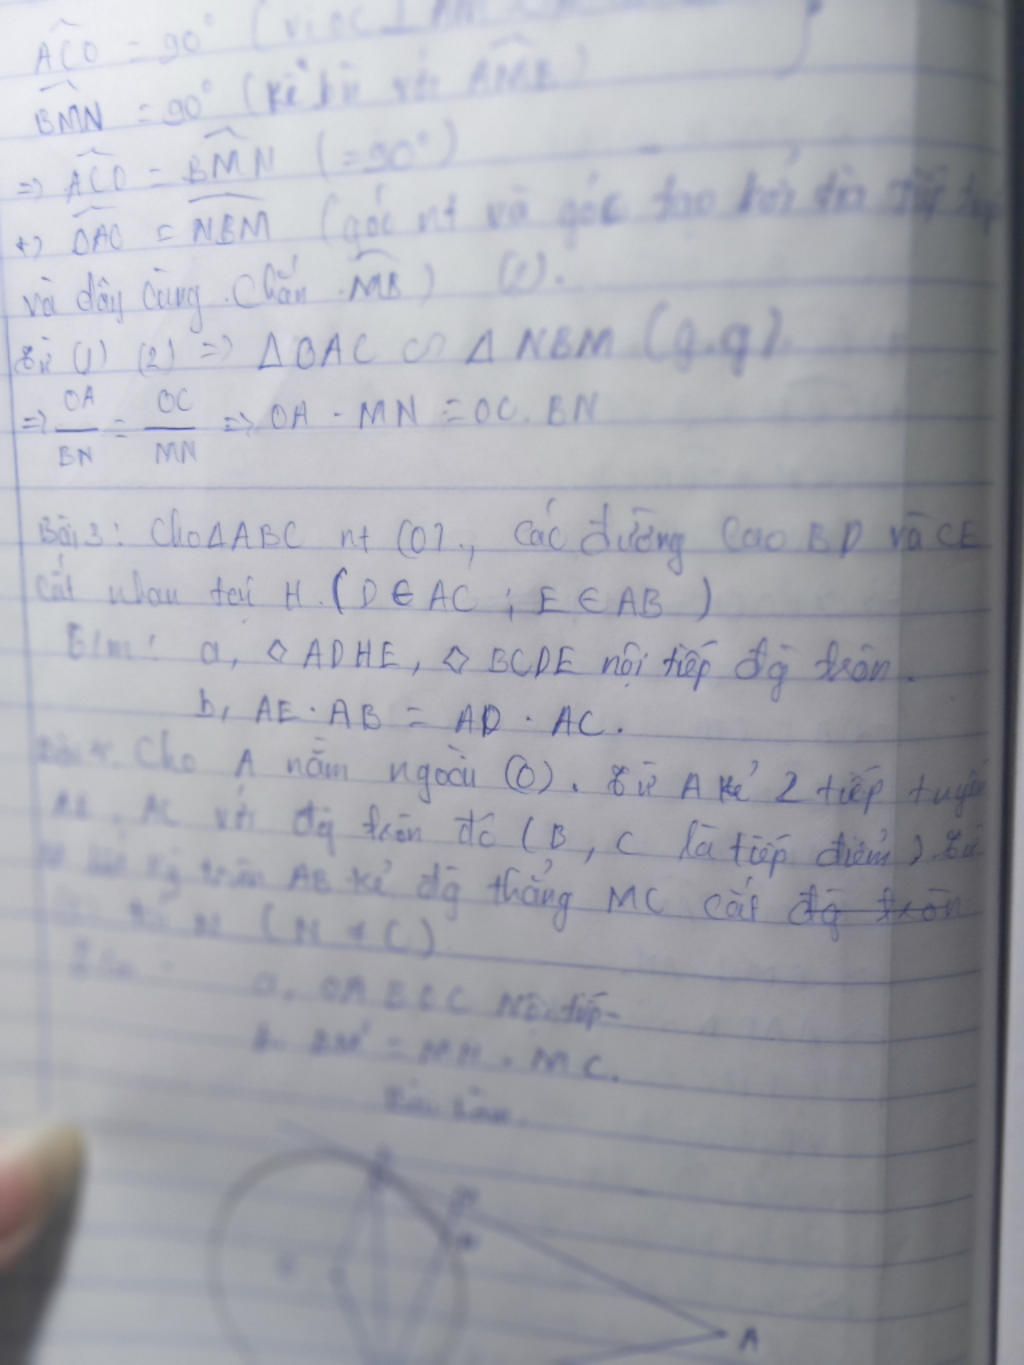 ACO = 90° (vì OC ⊥
BMN = 90° (kề bù với AMB)
=> ACO = BMN (=90°)
+) OAC = NBM (góc nt và góc tạo bởi tia tiếp tuyến
và dây cùng chắn MB) (2).
Từ (1) (2) => ΔOAC ∽ Δ NBM (g.g).
=> OA/BN = OC/MN => OA . MN = OC. BN
Bài 3: Cho ΔABC nt (O)., các đường cao BD và CE
cắt nhau tại H. (D ∈ AC ; E ∈ AB)
a, ◇ ADHE, ◇ BCDE nội tiếp đg tròn.
b, AE . AB = AD . AC.
Bài 4. Cho A nằm ngoài (O). Từ A kẻ 2 tiếp tuyến
AB, AC với đg tròn đó (B, C là tiếp điểm). Từ
M bất kỳ trên AB kẻ đg thẳng MC cắt đg tròn
tại N (N ≠ C)
a, nội tiếp
b. BM² = MN . MC.
A